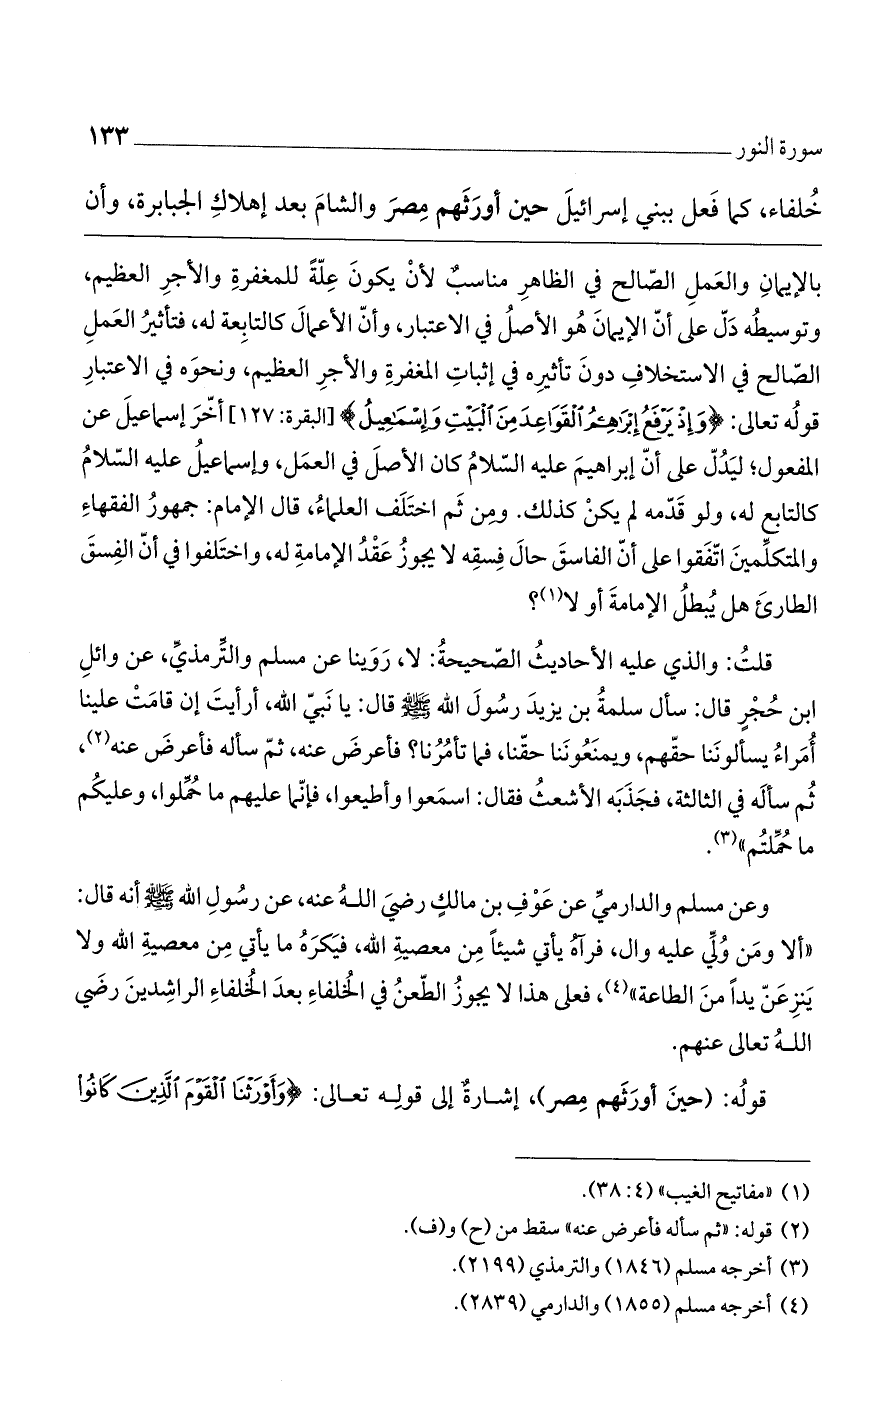 سورة النور ١٣٣
خُلفاء، كما فَعل ببني إسرائيلَ حين أورَثَهم مِصرَ والشامَ بعد إهلاكِ الجبابرة، وأن
بالإيمانِ والعَملِ الصّالح في الظاهرِ مناسبٌ لأنْ يكونَ عِلّةً للمغفرةِ والأجرِ العظيم،
وتوسيطُه دَلّ على أنّ الإيمانَ هُو الأصلُ في الاعتبار، وأنّ الأعمالَ كالتابِعة له، فتأثيرُ العَملِ
الصّالح في الاستخلافِ دونَ تأثيره في إثباتِ المغفرةِ والأجرِ العظيم، ونحوَه في الاعتبارِ
قولُه تعالى: ﴿وَإِذْ يَرْفَعُ إِبْرَاهِـۧمُ ٱلْقَوَاعِدَ مِنَ ٱلْبَيْتِ وَإِسْمَـٰعِيلُ﴾ [البقرة: ١٢٧] أخّرَ إسماعيلَ عن
المفعول؛ ليَدُلّ على أنّ إبراهيمَ عليه السّلامُ كان الأصلَ في العمَل، وإسماعيلُ عليه السّلامُ
كالتابع له، ولو قدّمه لم يكنْ كذلك. ومِن ثَم اختَلَف العلماءُ، قال الإمام: جمهورُ الفقهاءِ
والمتكلِّمينَ اتّفَقوا على أنّ الفاسقَ حالَ فِسقِه لا يجوزُ عَقْدُ الإمامةِ له، واختَلفوا في أنّ الفِسقَ
الطارئَ هل يُبطلُ الإمامةَ أو لا(١)؟
قلتُ: والذي عليه الأحاديثُ الصّحيحةُ: لا، رَوَينا عن مسلم والتِّرمذيِّ، عن وائلِ
ابن حُجْرٍ قال: سأل سلمةُ بن يزيدَ رسُولَ الله ﷺ قال: يا نَبيّ الله، أرأيتَ إن قامَتْ علينا
أُمَراءُ يسألونَنا حقّهم، ويمنَعُونَنا حقّنا، فما تأمُرُنا؟ فأعرضَ عنه، ثمّ سأله فأعرضَ عنه(٢)،
ثُم سألَه في الثالثة، فجَذَبَه الأشعثُ فقال: اسمَعوا وأطيعوا، فإنّما عليهم ما حُمِّلوا، وعليكُم
ما حُمِّلتُم»(٣).
وعن مسلم والدارميِّ عن عَوْفِ بن مالكٍ رضيَ اللـهُ عنه، عن رسُولِ الله ﷺ أنه قال:
«ألا ومَن وُلِّي عليه وال، فرآهُ يأتي شيئاً مِن معصيةِ الله، فيَكرَهُ ما يأتي مِن معصيةِ الله ولا
يَنزِعَنّ يداً منَ الطاعة»(٤)، فعلى هذا لا يجوزُ الطّعنُ في الخُلفاءِ بعدَ الخُلفاءِ الراشِدينَ رضَي
اللـهُ تعالى عنهم.
قولُه: (حينَ أورَثَهم مِصر)، إشـارةٌ إلى قولِـه تعـالى: ﴿وَأَوْرَثْنَا ٱلْقَوْمَ ٱلَّذِينَ كَانُوا۟
(١) «مفاتيح الغيب» (٤: ٣٨).
(٢) قوله: «ثم سأله فأعرض عنه» سقط من (ح) و(ف).
(٣) أخرجه مسلم (١٨٤٦) والترمذي (٢١٩٩).
(٤) أخرجه مسلم (١٨٥٥) والدارمي (٢٨٣٩).